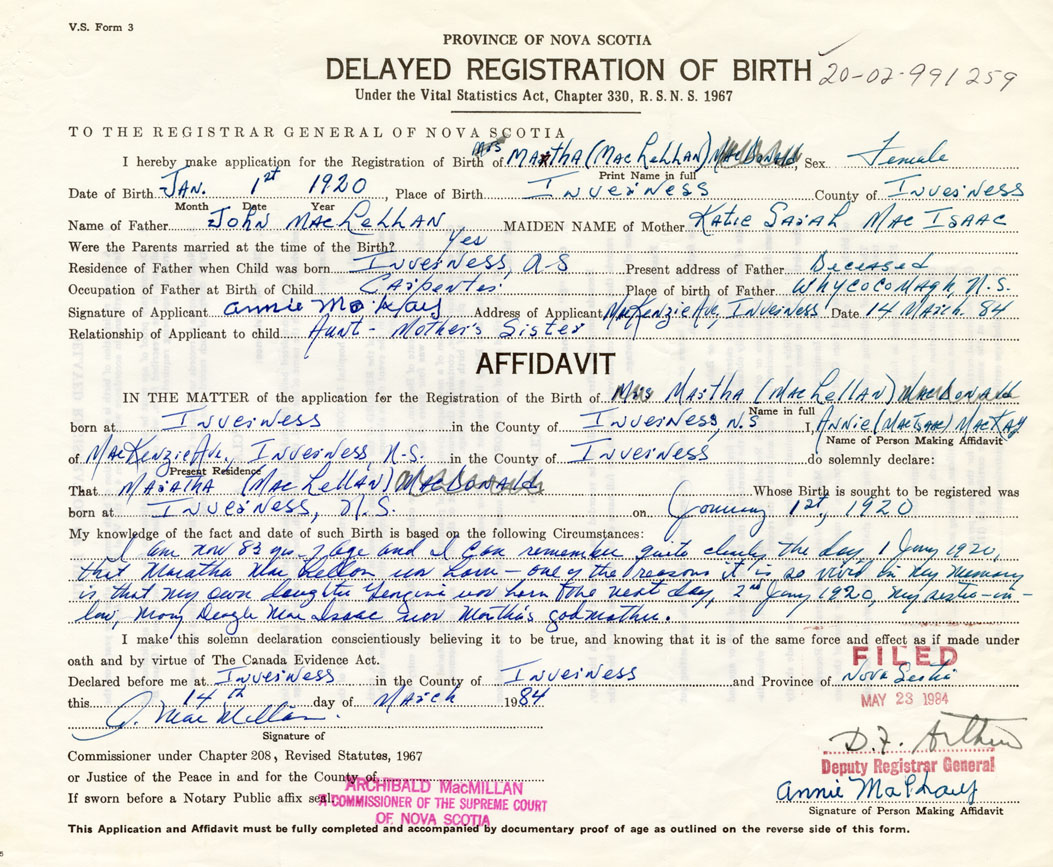 V.S. Form 3
PROVINCE OF NOVA SCOTIA
DELAYED REGISTRATION OF BIRTH 20-02-991259
Under the Vital Statistics Act, Chapter 330, R.S.N.S. 1967
TO THE REGISTRAR GENERAL OF NOVA SCOTIA
I hereby make application for the Registration of Birth of Mrs Martha (MacLellan) MacDonald Sex Female
Print Name in full
Date of Birth JAN. 1st 1920, Place of Birth Inverness County of Inverness
Month Date Year
Name of Father John MacLellan MAIDEN NAME of Mother Katie Sarah MacIsaac
Were the Parents married at the time of the Birth? Yes
Residence of Father when Child was born Inverness, Present address of Father Deceased
Occupation of Father at Birth of Child Carpenter Place of birth of Father Whycocomagh, N.S.
Signature of Applicant Annie Address of Applicant MacKenzie Ave, Inverness Date 14 March 84
Relationship of Applicant to child Aunt - Mother's Sister
AFFIDAVIT
IN THE MATTER of the application for the Registration of the Birth of Mrs Martha (MacLellan) MacDonald
Name in full
born at Inverness in the County of Inverness, N.S I, Annie (MacIsaac) MacKay
Name of Person Making Affidavit
of MacKenzie Ave., Inverness, N.S. in the County of Inverness do solemnly declare:
Present Residence
That Maratha (MacLellan) MacDonald Whose Birth is sought to be registered was
born at Inverness, N.S. on January 1st, 1920
My knowledge of the fact and date of such Birth is based on the following Circumstances:
I am now 83 yrs of age and I can remember quite clearly the day, 1 Jany 1920,
that Maratha MacLellan was born - one of the reasons it is so vivid in my memory
is that my own daughter was born the next day, 2nd Jany 1920, my sister-in-
law, Mary MacIsaac was Martha's godmother.
I make this solemn declaration conscientiously believing it to be true, and knowing that it is of the same force and effect as if made under
oath and by virtue of The Canada Evidence Act.
FILED
Declared before me at Inverness in the County of Inverness and Province of Nova Scotia
this 14th day of March 1984
MAY 23 1984
A. MacMillan
Signature of
D.F. Arthur
Commissioner under Chapter 208, Revised Statutes, 1967
Deputy Registrar General
or Justice of the Peace in and for the County of
ARCHIBALD MacMILLAN
Annie
If sworn before a Notary Public affix seal.
A COMMISSIONER OF THE SUPREME COURT
Signature of Person Making Affidavit
OF NOVA SCOTIA
This Application and Affidavit must be fully completed and accompanied by documentary proof of age as outlined on the reverse side of this form.
5